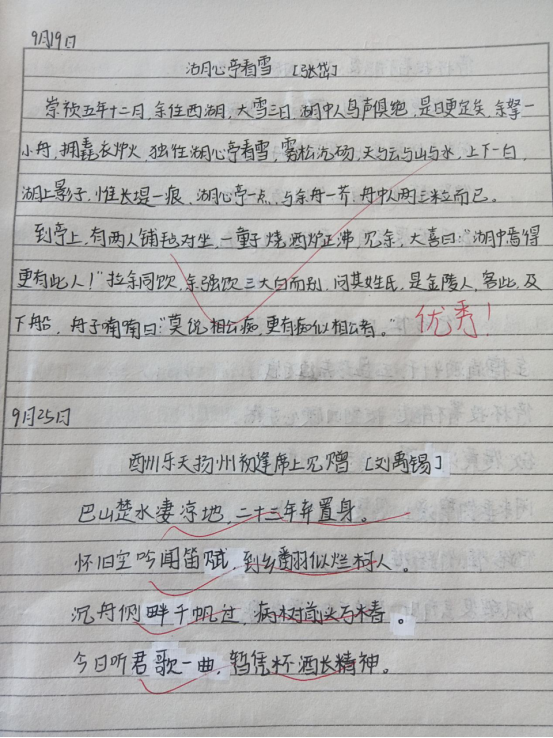 9月19日
湖心亭看雪 [张岱]
崇祯五年十二月,余住西湖,大雪三日,湖中人鸟声俱绝,是日更定矣,余挐一
小舟,拥毳衣炉火,独往湖心亭看雪,雾凇沆砀,天与云与山与水,上下一白,
湖上影子,惟长堤一痕,湖心亭一点,与余舟一芥,舟中人两三粒而已。
到亭上,有两人铺毡对坐,一童子烧酒炉正沸,见余,大喜曰:"湖中焉得
更有此人!"拉余同饮,余强饮三大白而别,问其姓氏,是金陵人,客此,及
下船,舟子喃喃曰:"莫说相公痴,更有痴似相公者。"
优秀!
9月25日
酬乐天扬州初逢席上见赠 [刘禹锡]
巴山楚水凄凉地,二十三年弃置身。
怀旧空吟闻笛赋,到乡翻似烂柯人。
沉舟侧畔千帆过,病树前头万木春。
今日听君歌一曲,暂凭杯酒长精神。